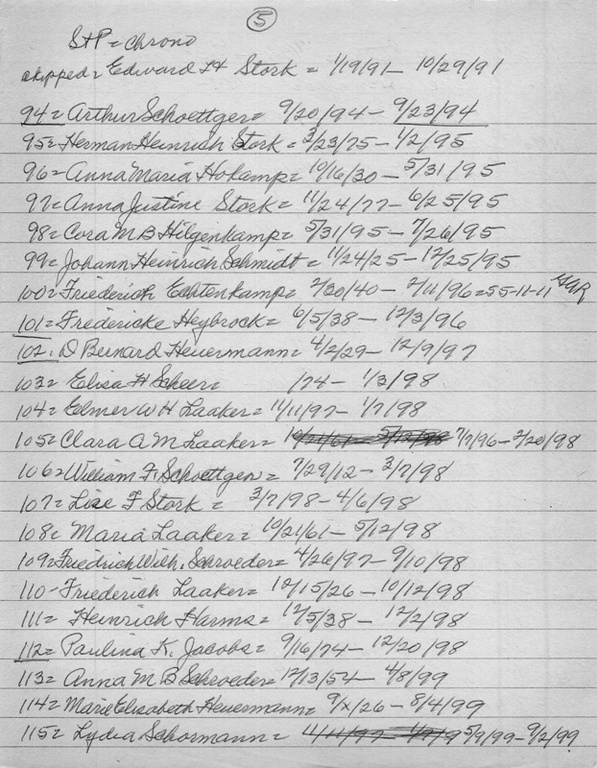 5
St P = Chrono
skipped = Edward H Stork = 1/19/91 - 10/29/91
94 = Arthur Schoettger = 9/20/94 - 9/23/94
95 = Herman Heinrich Stork = 3/23/75 - 1/2/95
96 = Anna Maria Hokamp = 10/16/30 - 5/31/95
97 = Anna Justine Stork = 11/24/77 - 6/25/95
98 = Cora M B Hilgenkamp = 5/31/95 - 7/26/95
99 = Johann Heinrich Schmidt = 11/24/25 - 12/25/95
100 = Friederich Echtenkamp = 2/30/40 - 2/11/96 = 55-11-11
101 = Fredericke Heybrock = 6/5/38 - 12/3/96
102. D Bernard Heuermann = 4/2/29 - 12/9/97
103 = Elisa H Scheer = /74 - 1/3/98
104 = Elmer W H Laaker = 11/11/97 - 1/7/98
105 = Clara A M Laaker = 10/21/61 - 5/12/98 7/7/96 - 2/20/98
106 = William F. Schoettgen = 7/29/12 - 3/7/98
107 = Lise F Stork = 3/7/98 - 4/6/98
108 = Maria Laaker = 10/21/61 - 5/12/98
109 = Friedrich Wilh. Schroeder = 4/26/97 - 9/10/98
110 - Friederich Laaker = 10/15/26 - 10/12/98
111 = Heinrich Harms = 12/5/38 - 12/2/98
112 = Paulina K. Jacobs = 9/16/74 - 12/20/98
113 = Anna M B Schroeder = 12/13/54 - 4/8/99
114 = Marie Elisabeth Heuermann = 9/x/26 - 8/4/99
115 = Lydia Schormann = 5/9/99 - 9/2/99